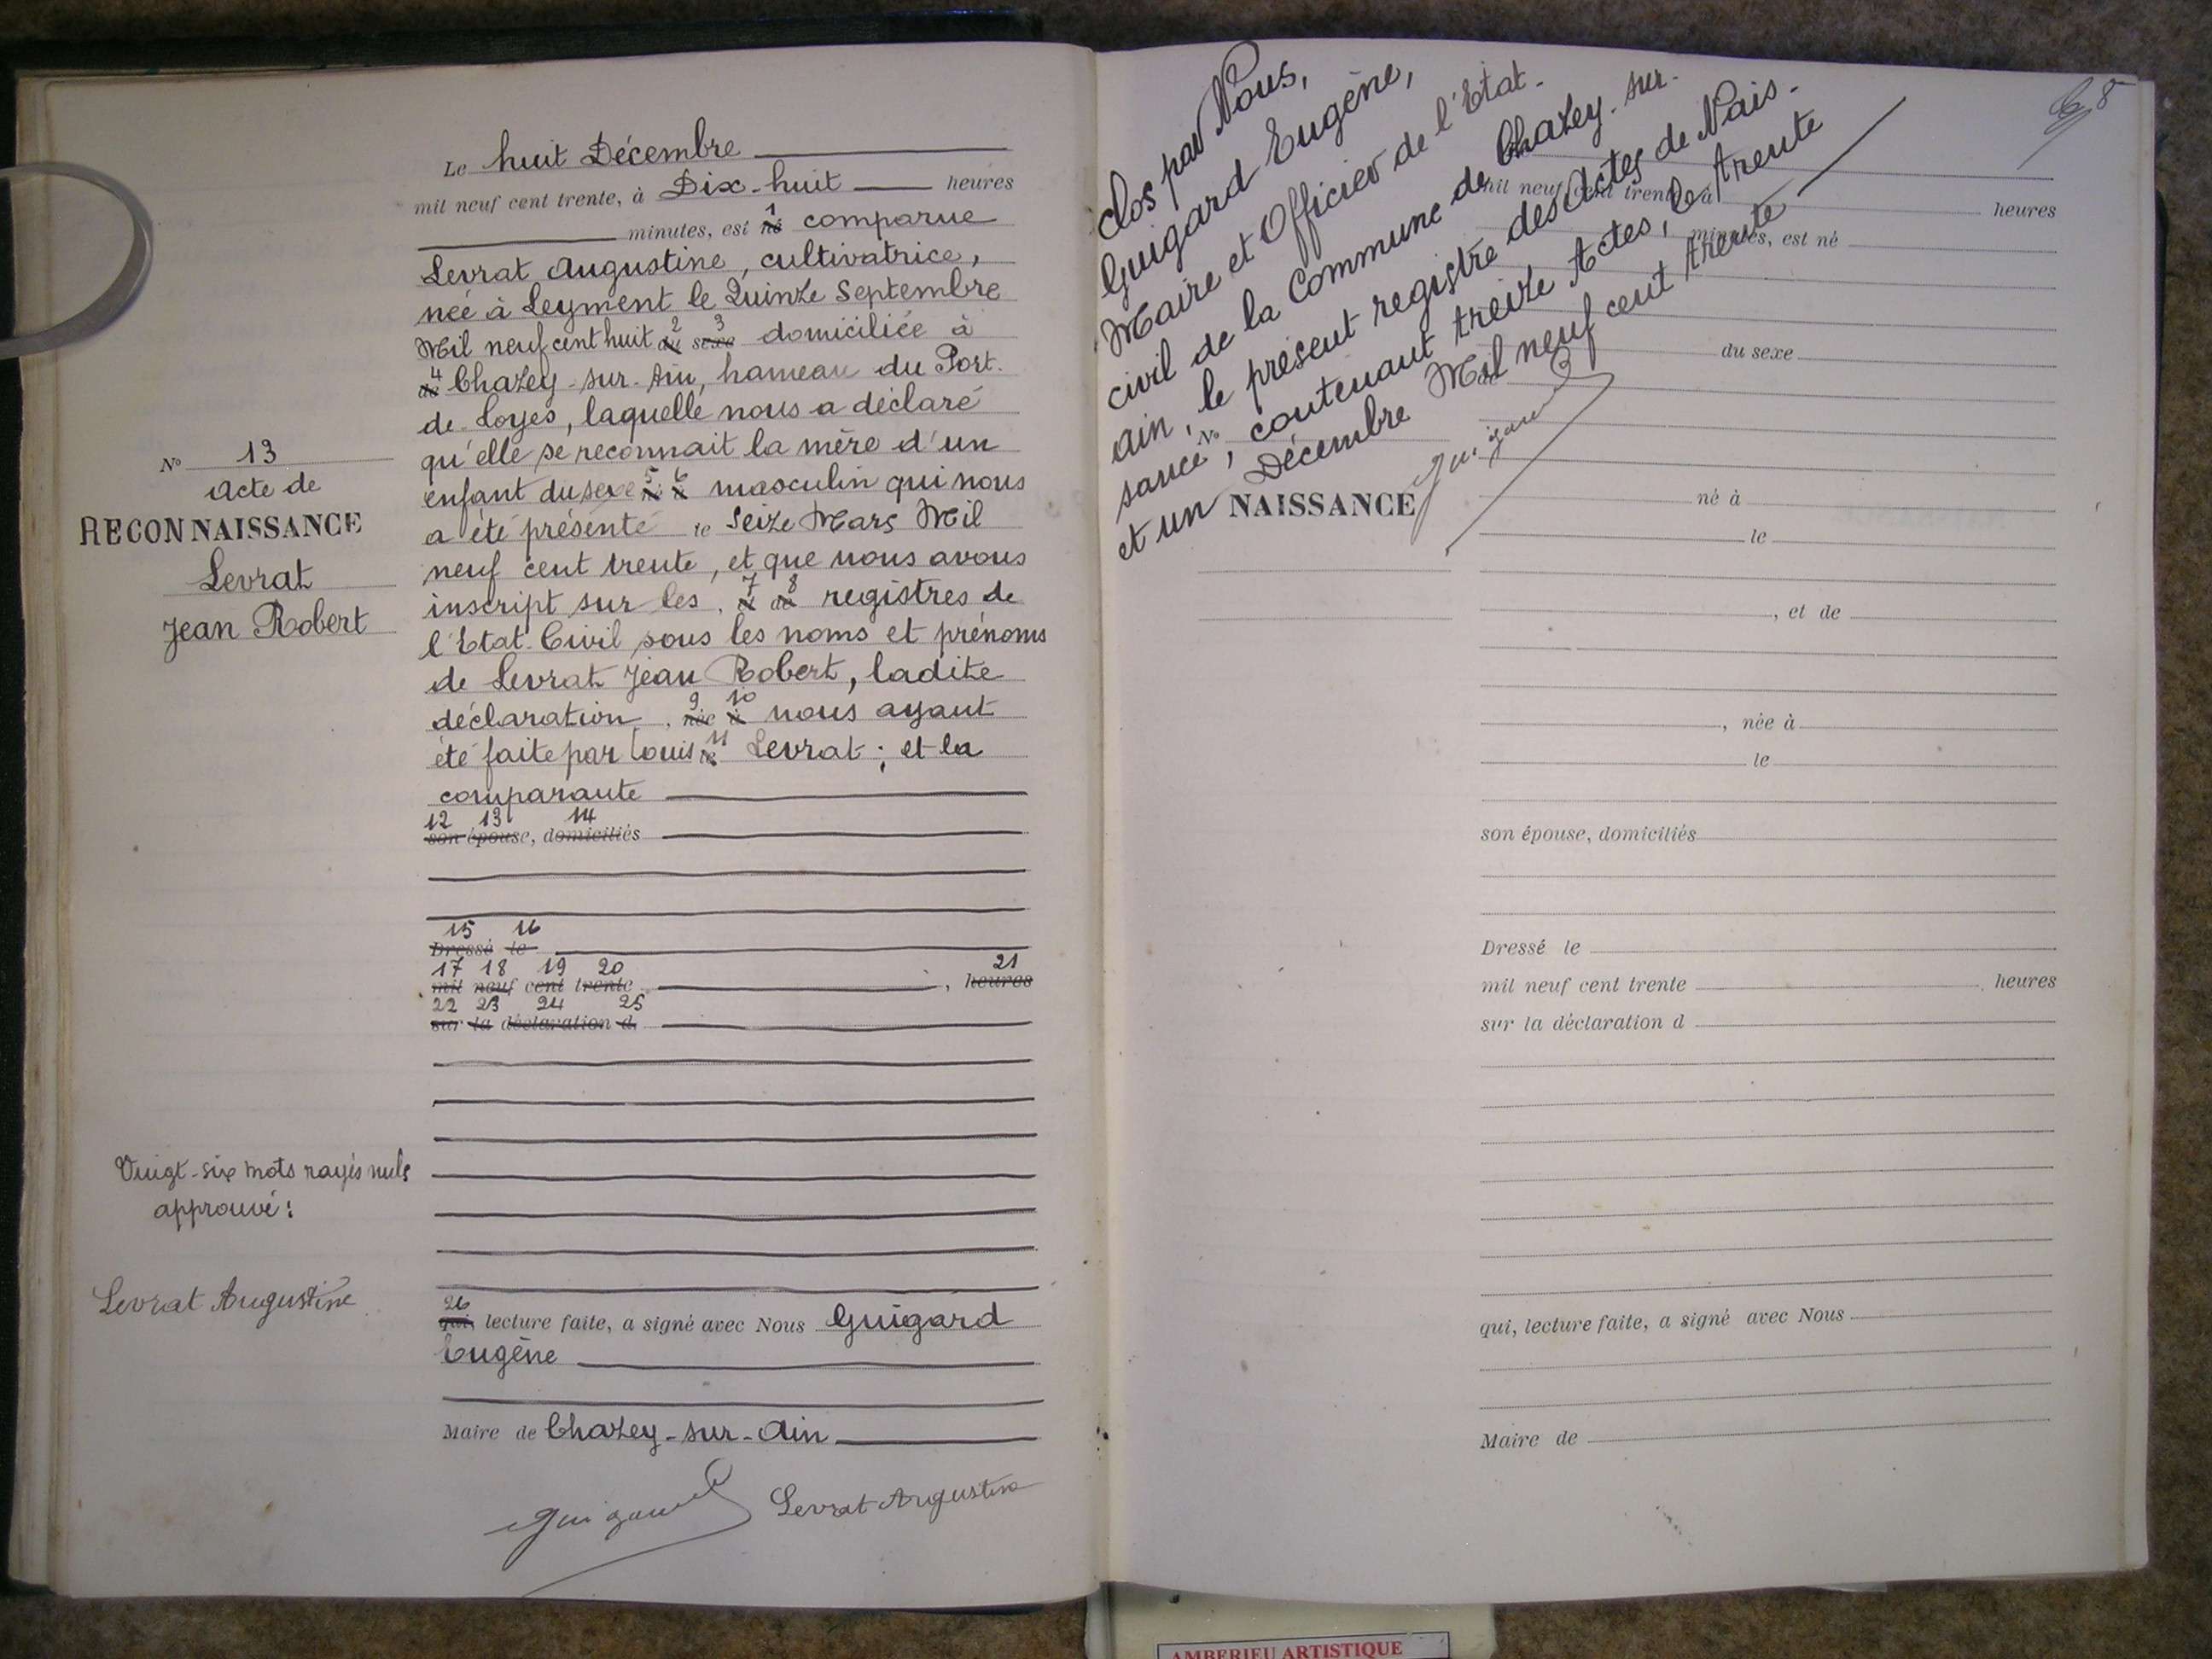 Le huit Décembre
mil neuf cent trente, à Dix-huit heures
minutes, est né 1 comparue
Levrat Augustine, cultivatrice,
née à Leyment le Quinze Septembre
Mil neuf cent huit du 2 sexe 3 domiciliée à
de 4 Chazey-sur-Ain, hameau du Port.
de-Loyes, laquelle nous a déclaré
qu'elle se reconnait la mère d'un
enfant du sexe 5 6 masculin qui nous
a été présenté le Seize Mars Mil
neuf cent trente, et que nous avons
inscript sur les 7 8 registres de
l'Etat-Civil sous les noms et prénoms
de Levrat Jean Robert, ladite
déclaration, née 9 à 10 nous ayant
été faite par Louis le 11 Levrat; et la
comparante
12 13 14
son épouse, domiciliés
15 16
Dressé le
17 18 19 20 21
mil neuf cent trente , heures
22 23 24 25
sur la déclaration d
26
qui, lecture faite, a signé avec Nous Guigard
Eugène
Maire de Chazey-sur-Ain
Guigard Levrat Augustine
N° 13
Acte de
RECONNAISSANCE
Levrat
Jean Robert
Vingt-six mots rayés nuls
approuvé:
Levrat Augustine
8
Clos par Nous,
Guigard Eugène,
Maire et Officier de l'Etat-
civil de la Commune de Chazey-sur-
Ain, le présent registre des Actes de Nais-
sance, contenant treize Actes, le trente
et un Décembre Mil neuf cent trente
Guigard
mil neuf cent trente, à heures
minutes, est né
du sexe
de
N°
NAISSANCE
né à
le
, et de
, née à
le
son épouse, domiciliés
Dressé le
mil neuf cent trente , heures
sur la déclaration d
qui, lecture faite, a signé avec Nous
Maire de
AMBERIEU ARTISTIQUE